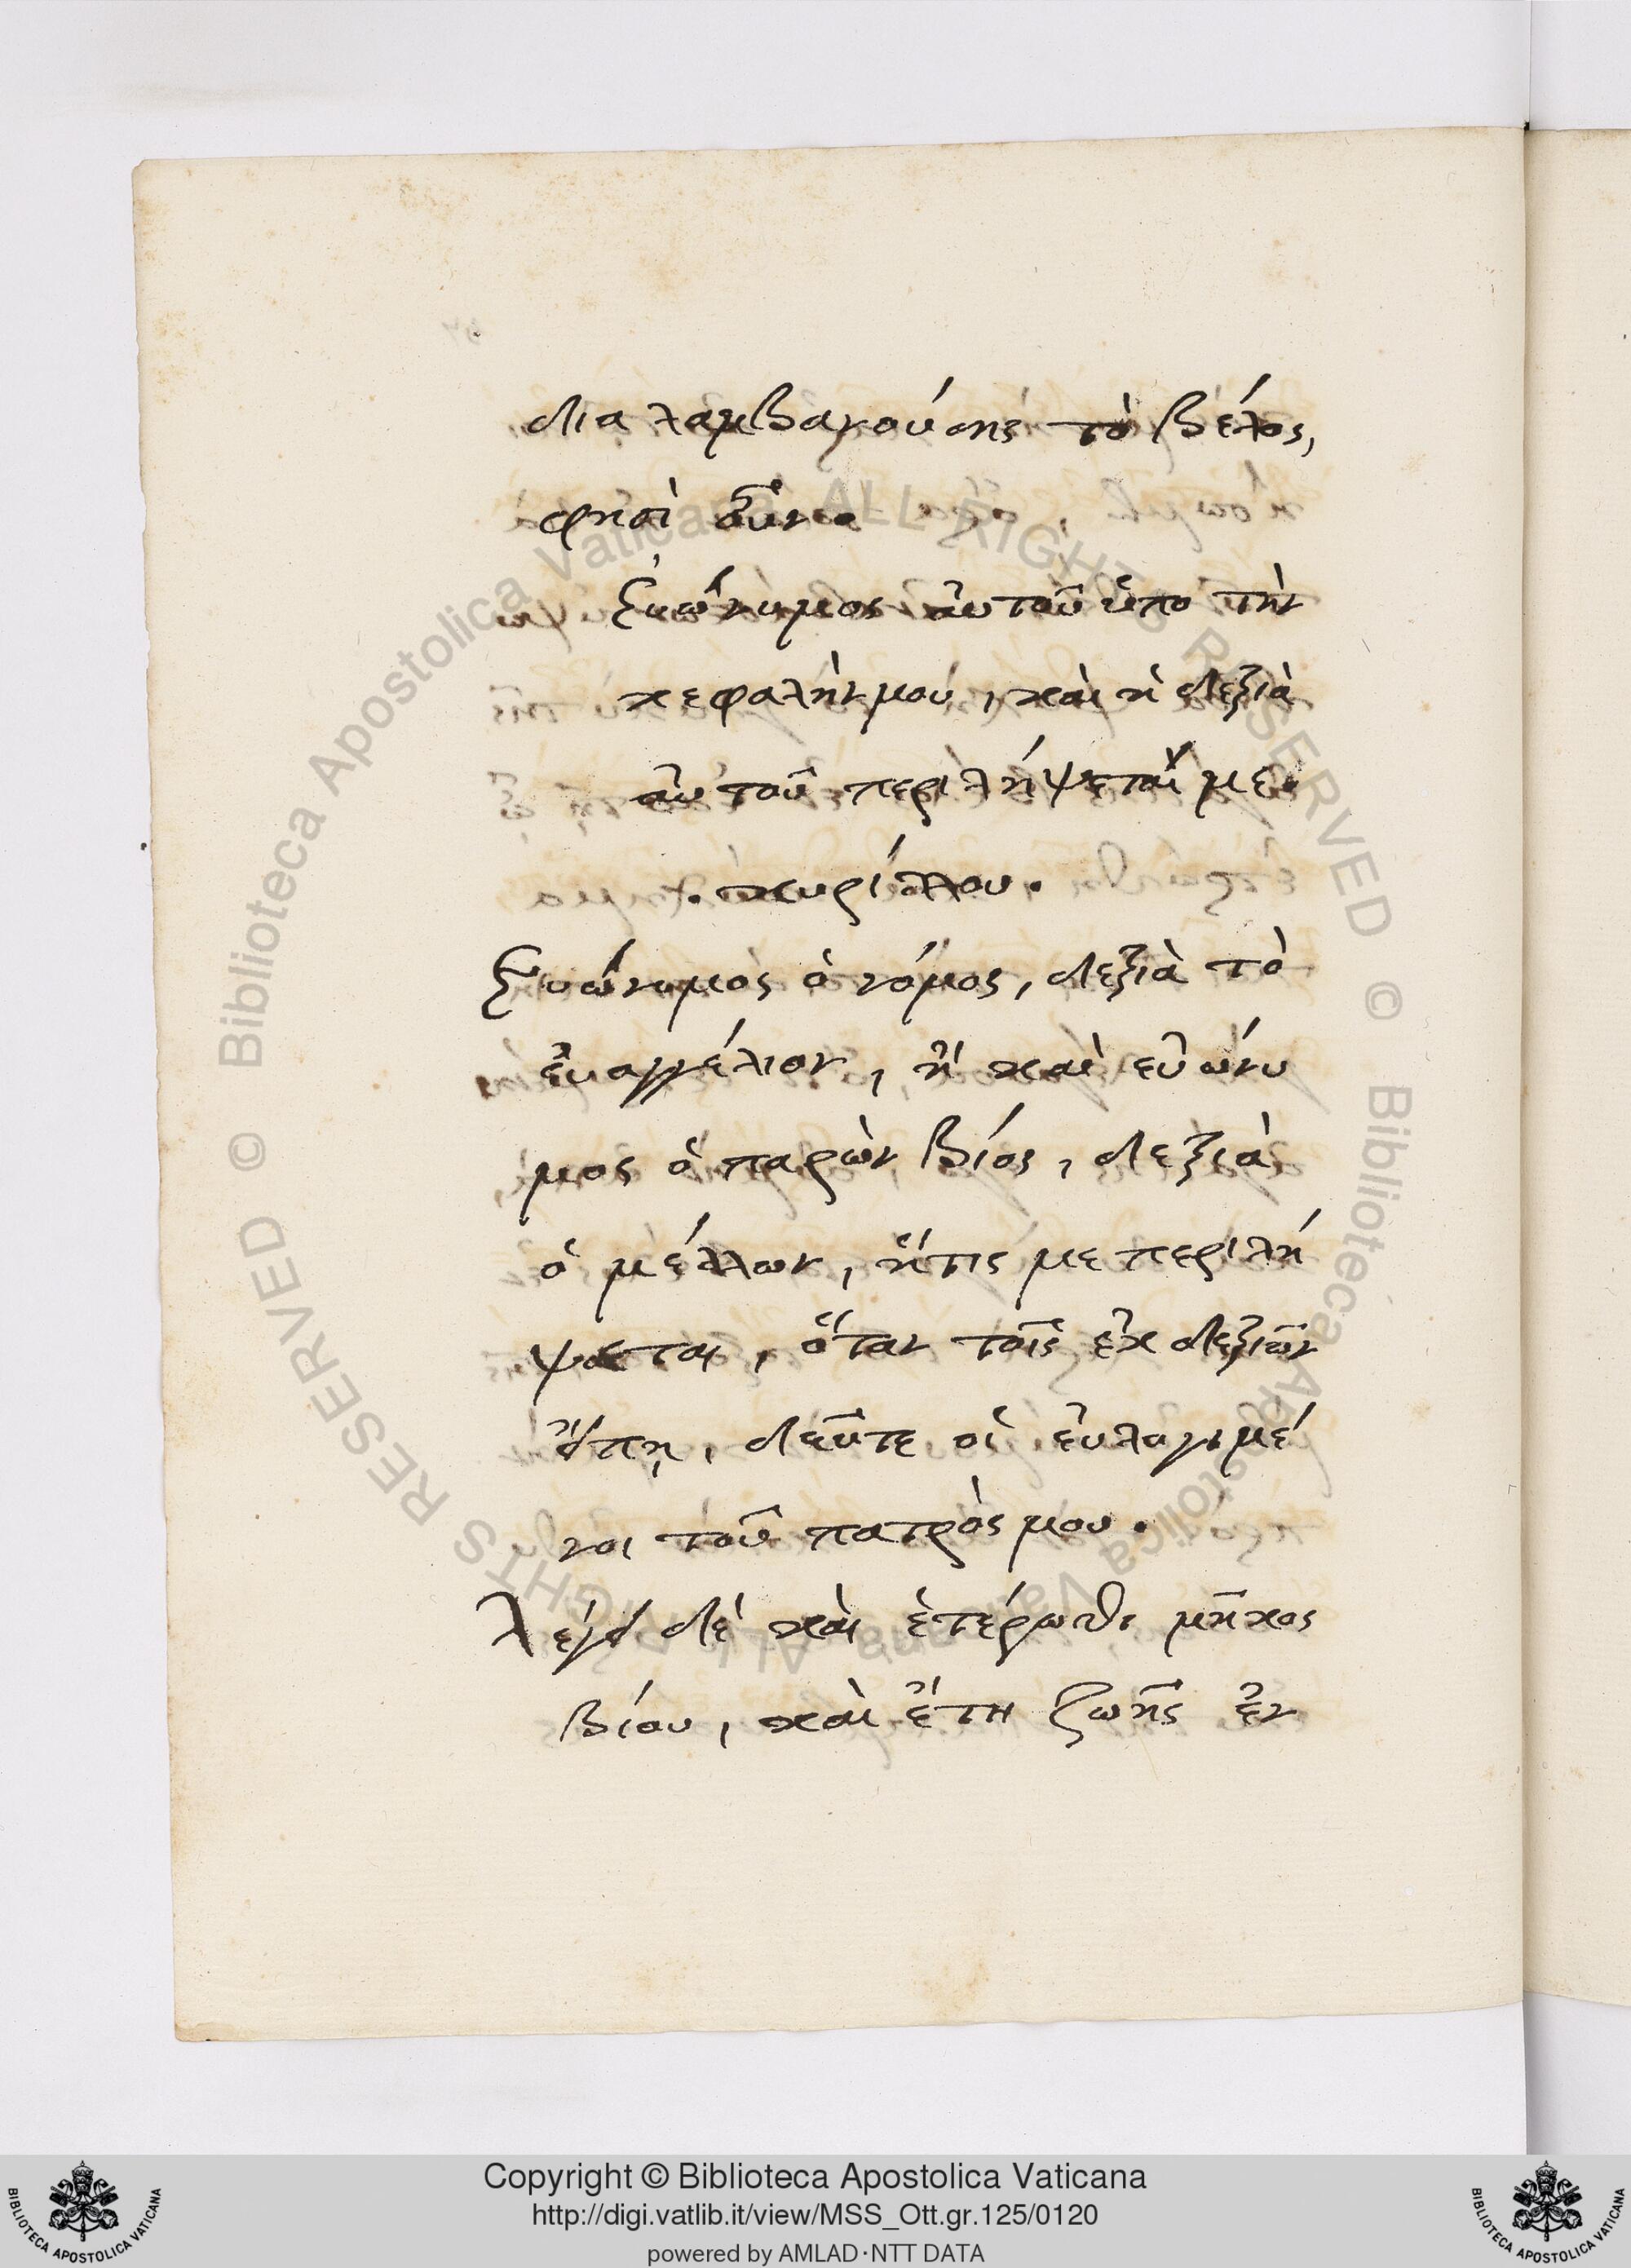 διαλαμβανούσης τὸ βέλος,
φησὶ οὖν.
Εὐώνυμος αὐτοῦ ὑπο τὴν
κεφαλήν μου, καὶ ἡ δεξιὰ
αὐτοῦ περιλήψεταί με.
. κυρίλλου.
Εὐώνυμος ὁ νόμος, δεξιὰ τὸ
εὐαγγέλιον, ἢ καὶ εὐώνυ
μος ὁ παρὼν βίος, δεξιὰ
ὁ μέλλων, ἥτις με περιλή
ψεται, ὅταν τοῖς ἐκ δεξιῶν
εἴπῃ, δεῦτε οἱ εὐλογημέ
νοι τοῦ πατρός μου.
Λέγει δὲ καὶ ἑτέρωθι μῆκος
βίου, καὶ ἔτη ζωῆς ἐν
Copyright © Biblioteca Apostolica Vaticana
http://digi.vatlib.it/view/MSS_Ott.gr.125/0120
powered by AMLAD·NTT DATA
BIBLIOTECA APOSTOLICA VATICANA
BIBLIOTECA APOSTOLICA VATICANA
© Biblioteca Apostolica Vaticana ALL RIGHTS RESERVED
© Biblioteca Apostolica Vaticana ALL RIGHTS RESERVED